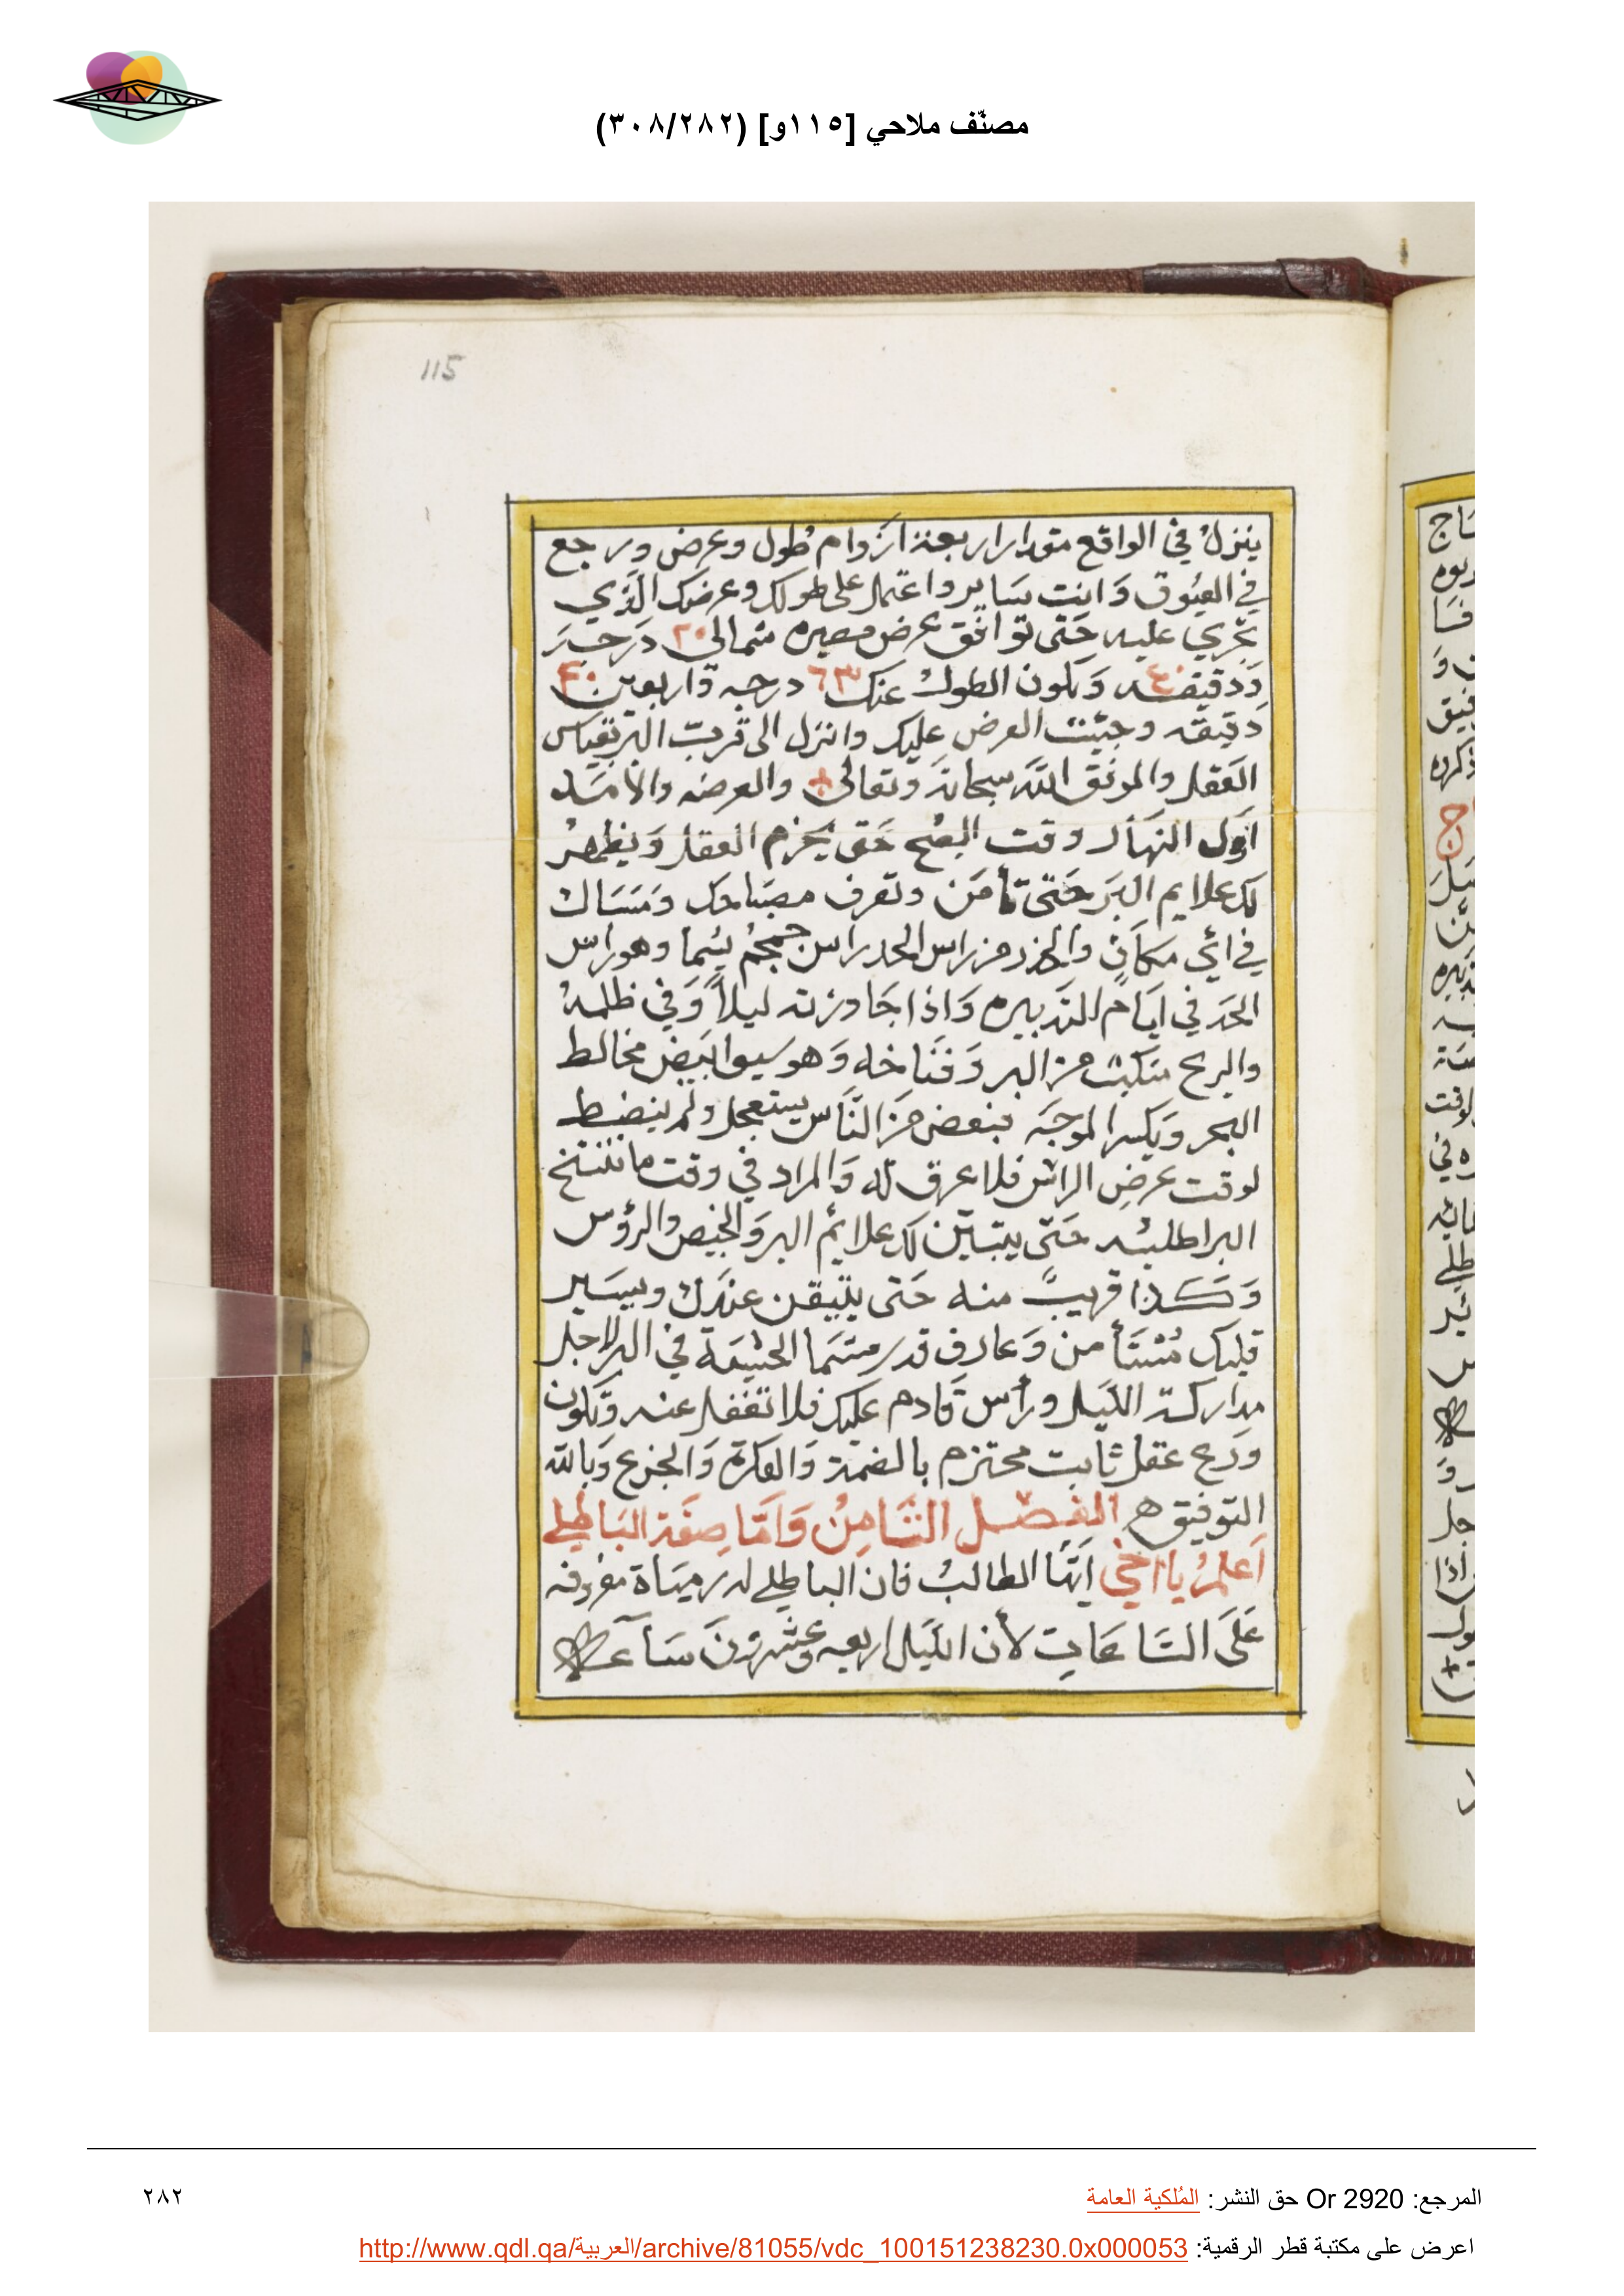 مصنّف ملاحي [١١٥و] (٣٠٨/٢٨٢)
115
ينزل في الواقع مقدار اربعة ازوام طول وعرض ورجع
في العيوق وَانت سَاير واعتمل على طولك وعرضك الذَي
تجري عليه حَتى توافق عرض مصيره شمالي ٢٠ دَرَجه
وَدقيقه ٤٠ وَيكون الطول عنك ٦٣ درجه وَاربعين ٤٠
دَقيقه وجيّت العرض عليك وانزل الى قربت البر بقياس
العَقل والموفق الله سبحانهَ وَتعالى والعرضه والامَسَاه
اوَل النهَار وقت الصُبح حَتى يخزم العقل وَيظهرُ
لك علايم البَر حَتى تأمَن وتعرف مصَباحك وَمَسَاك
في ائي مكاَنٍ والحذر من راس الحد راس جمجمُ يسُما وهو راس
الحَد في ايَام التدبيره وَاذا جَاوزته ليلاً وَفي ظلمهُ
والريح متكيت من البر وَفنَاخه وَهو سيوابيَض مخالط
البحر وَيكسر الموجَه فبعَض منَ النَاس يستعجل ولم ينضبط
لوقت عرَضِ الراس فلا عرق له وَالمراد في وقت ما تنتخ
البر اطلبه حَتى يتبَين لك علايم البر وَالخيص والرؤس
وَكذا قريبً منه حَتى يتيقن عنَدك ويسَير
قلبك مُسْتَأمن وَعارف قد رستَما الخشبَة في البر لاجل
مداركة الليَل ورأس قَادم عليك فلا تغفل عنه وَتكون
ودع عقل ثابت محتزم بالضمّة وَالفكرة وَالجزع وَبالله
التوفيق ه الفصل الثَامِنُ وَامَا صِفَة البَاطِلي
اَعلمُ يا اخَي ايَها الطالبُ فان الباطلي له رميَاة معروفه
عَلَى السَاعَاتِ لأن الليَل اربعه وعشرونَ سَاعه
المرجع: Or 2920 حق النشر: المُلكية العامة
٢٨٢
اعرض على مكتبة قطر الرقمية: http://www.qdl.qa/العربية/archive/81055/vdc_100151238230.0x000053